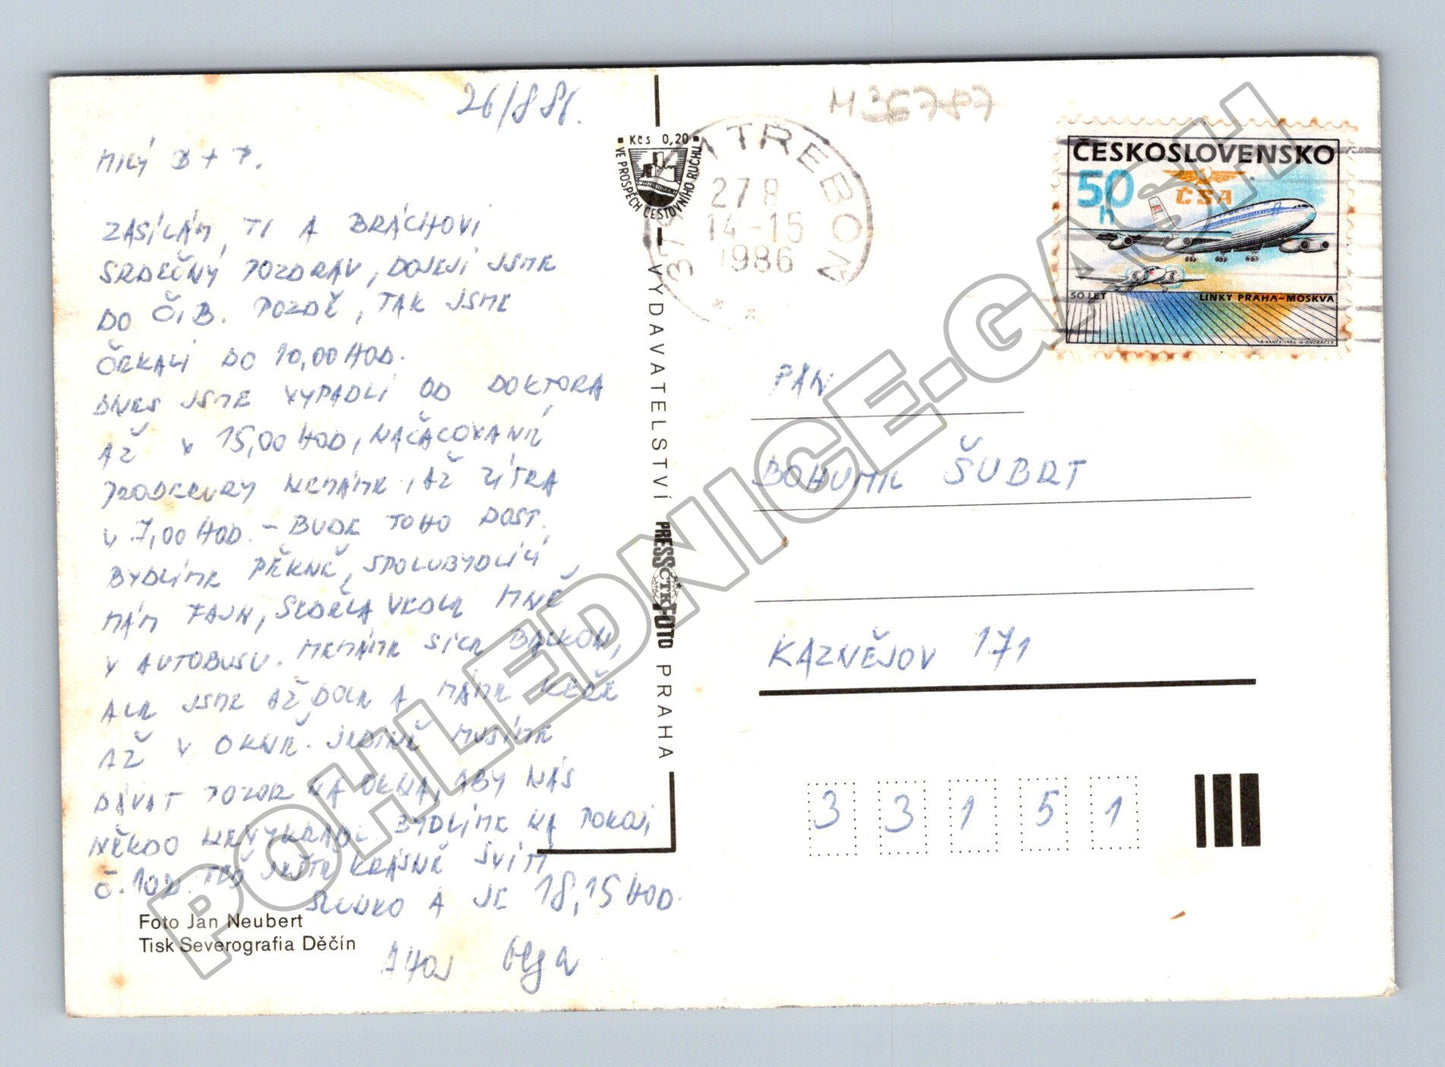 26/8 86.
MILÝ B + P.
ZASÍLÁM, TI A BRÁCHOVI
SRDEČNÝ POZDRAV, DOJELI JSME
DO Č.B. POZDĚ, TAK JSME
ČEKALI DO 10,00 HOD.
DNES JSME VYPADLI OD DOKTORA
AŽ V 15,00 HOD, NAČASOVANÉ
PROCEDURY NEMÁME, AŽ ZÍTRA
V 7,00 HOD. – BUDE TOHO DOST.
BYDLÍME PĚKNĚ, SPOLUBYDLÍCÍ
MÁM FAJN, SEDĚLA VEDLE MNĚ
V AUTOBUSU. NEMÁME SICE BALKON,
ALE JSME AŽ DOLE A MÁME KEŘE
AŽ V OKNĚ. JEDINĚ MUSÍME
DÁVAT POZOR NA OKNA, ABY NÁS
NĚKDO NEVYKRADL. BYDLÍME NA POKOJI
Č. 102. TEĎ JEŠTĚ KRÁSNĚ SVÍTÍ
SLUNKO A JE 18,15 HOD.
AHOJ Olga
Foto Jan Neubert
Tisk Severografia Děčín
Kčs 0,20
VE PROSPĚCH CESTOVNÍHO RUCHU
VYDAVATELSTVÍ PRESSFOTO PRAHA
ČTK
M36787
TŘEBOŇ
27 8
14-15
1986
ČESKOSLOVENSKO
50 h
ČSA
50 LET LINKY PRAHA–MOSKVA
PAN
BOHUMIL ŠUBRT
KAZNĚJOV 171
3 3 1 5 1
POHLEDNICE-GASH